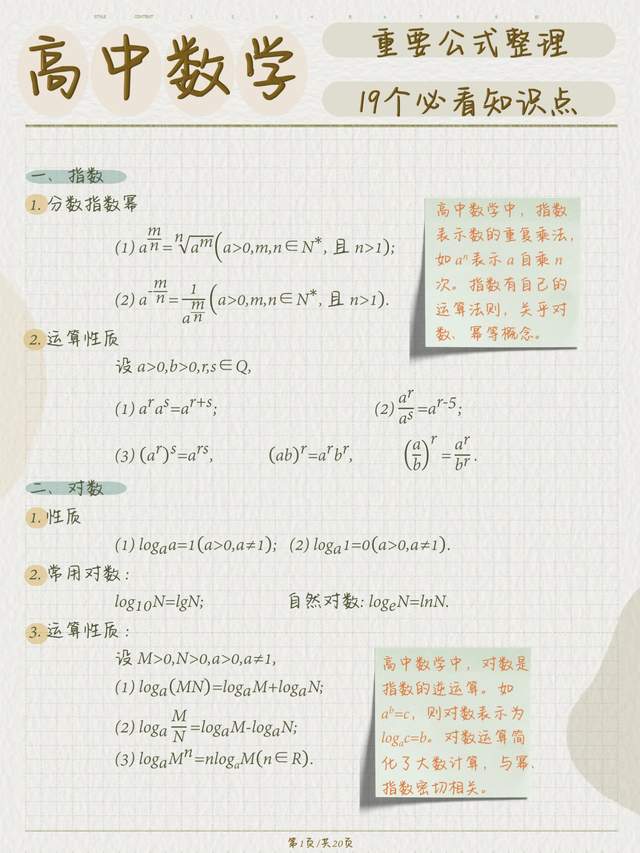 STYLE CONTENT 1 2 3 4 5 6 7 8 9 10
高中数学
重要公式整理
19个必看知识点
一、指数
1. 分数指数幂
(1) a^{m/n}=ⁿ√(a^m)(a>0,m,n∈N*, 且 n>1);
(2) a^{-m/n}=1/a^{m/n}(a>0,m,n∈N*, 且 n>1).
高中数学中，指数
表示数的重复乘法，
如 aⁿ 表示 a 自乘 n
次。指数有自己的
运算法则，关乎对
数、幂等概念。
2. 运算性质
设 a>0,b>0,r,s∈Q,
(1) a^r a^s=a^{r+s}; (2) a^r/a^s=a^{r-5};
(3) (a^r)^s=a^{rs}, (ab)^r=a^r b^r, (a/b)^r=a^r/b^r.
二、对数
1. 性质
(1) log_a a=1(a>0,a≠1); (2) log_a 1=0(a>0,a≠1).
2. 常用对数：
log_10 N=lgN; 自然对数: log_e N=lnN.
3. 运算性质：
设 M>0,N>0,a>0,a≠1,
(1) log_a(MN)=log_a M+log_a N;
(2) log_a M/N=log_a M-log_a N;
(3) log_a M^n=nlog_a M(n∈R).
高中数学中，对数是
指数的逆运算。如
a^b=c，则对数表示为
log_a c=b。对数运算简
化了大数计算，与幂、
指数密切相关。
第1页/共20页